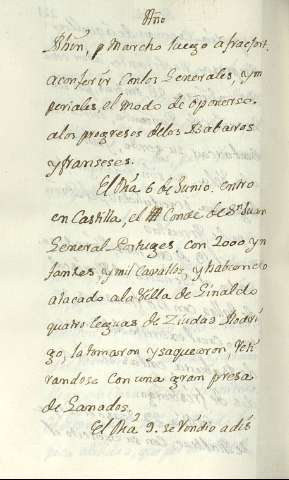 Año
Rhin, p Marcho luego a fraefort.
a conferir con los Generales, y ym
periales, el modo de oponerse.
a los progresos de los Babaros
y franseses.
El Dia 6 de Junio, entro
en Castilla, el Conde de Sn Juan
General Portuges, con 2000 yn
fantes, y mil Cavallos, y haviendo
atacado a la Villa de Ginaldo
quatro leguas de Ziudad Rodri
go, la tomaron y saquearon, Reti
randose con una gran presa
de Ganados.
El Dia 9. se Rendio a dis